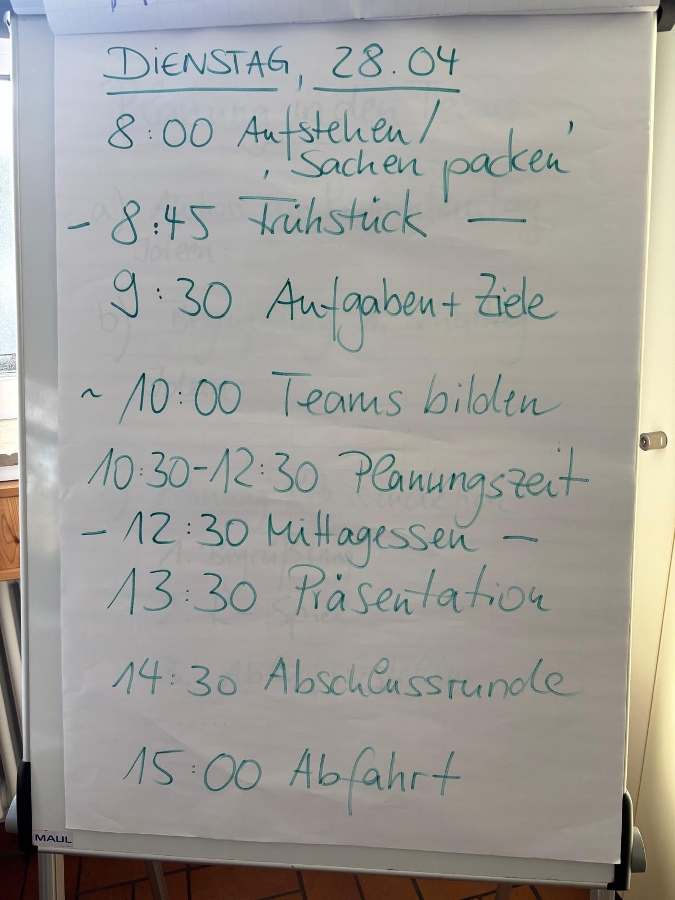 DIENSTAG, 28.04
8:00 Aufstehen/
'Sachen packen'
- 8:45 Frühstück -
9:30 Aufgaben + Ziele
~ 10:00 Teams bilden
10:30-12:30 Planungszeit
- 12:30 Mittagessen -
13:30 Präsentation
14:30 Abschlussrunde
15:00 Abfahrt
MAUL